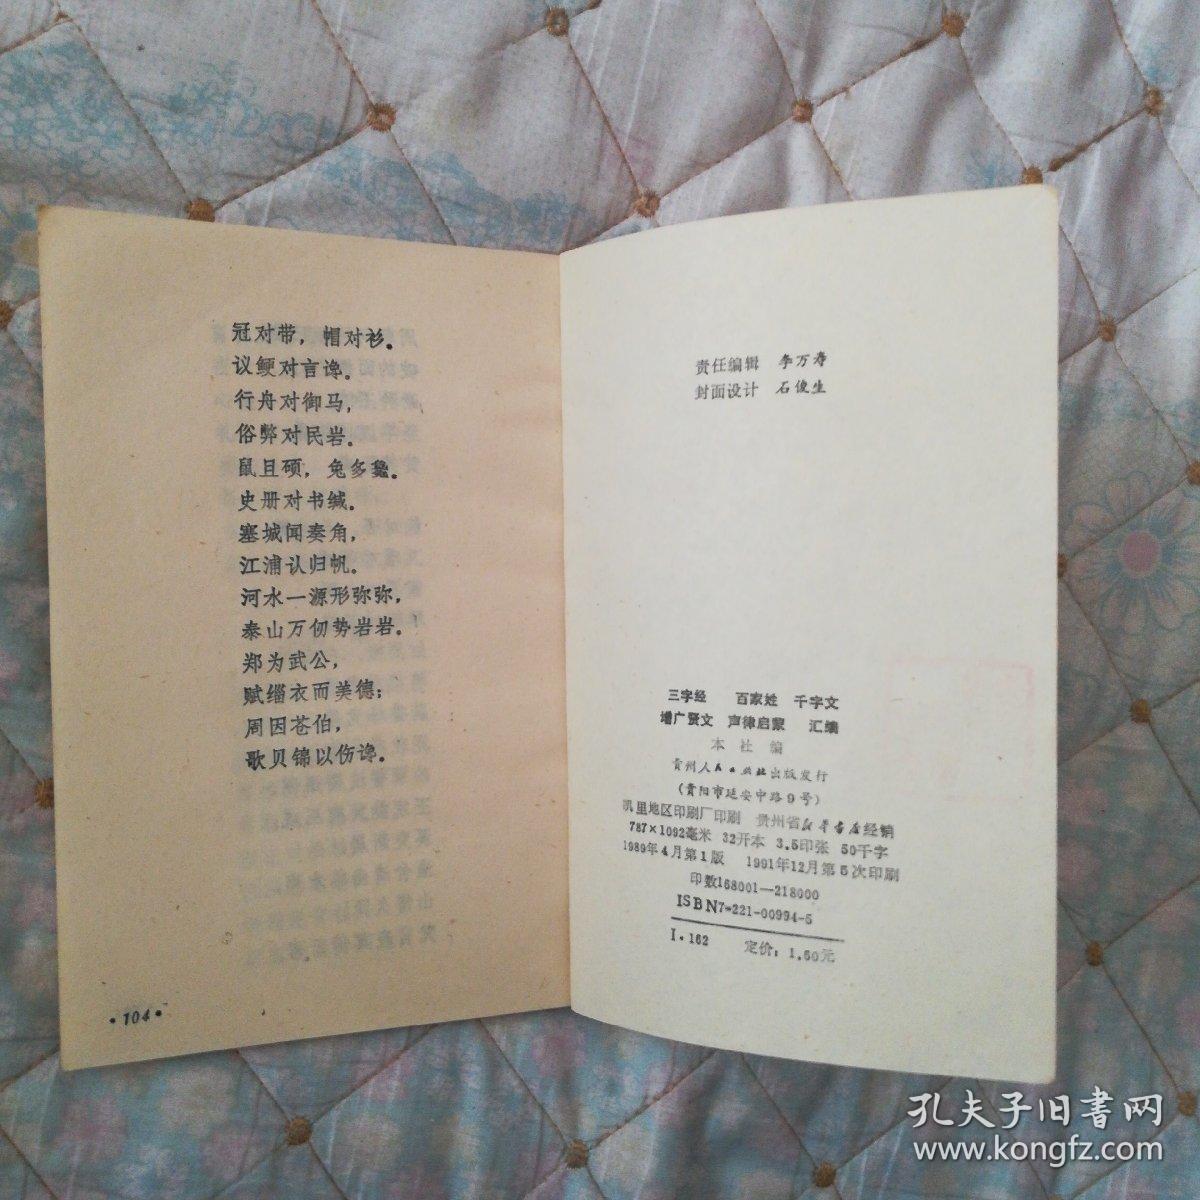 冠对带，帽对衫。
议鲠对言谗。
行舟对御马，
俗弊对民岩。
鼠且硕，兔多毚。
史册对书缄。
塞城闻奏角，
江浦认归帆。
河水一源形弥弥，
泰山万仞势岩岩。
郑为武公，
赋缁衣而美德；
周因苍伯，
歌贝锦以伤谗。
·104·
责任编辑 李万寿
封面设计 石俊生
三字经 百家姓 千字文
增广贤文 声律启蒙 汇编
本社编
贵州人民出版社出版发行
（贵阳市延安中路9号）
凯里地区印刷厂印刷 贵州省新华书店经销
787×1092毫米 32开本 3.5印张 50千字
1989年4月第1版 1991年12月第5次印刷
印数168001—218000
ISBN7-221-00994-5
I·162 定价：1.60元
孔夫子旧书网
www.kongfz.com